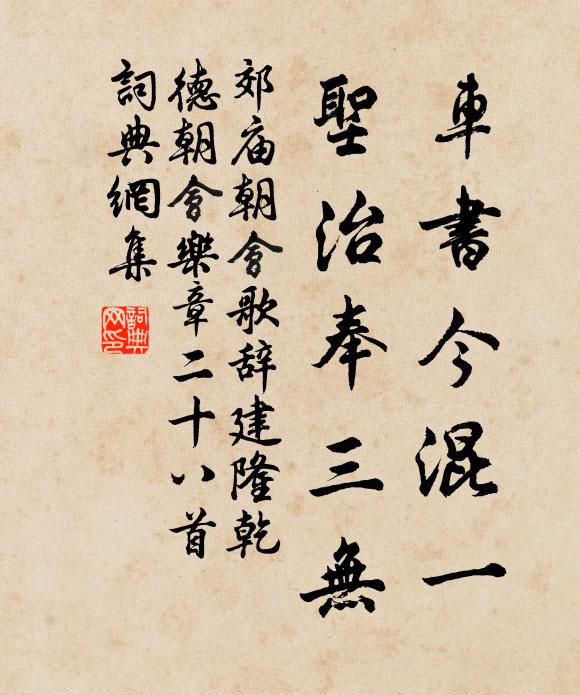 車書今混一
聖治奉三無
郊庙朝會歌辞建隆乾
德朝會樂章二十八首
詞典網集
詞典网印